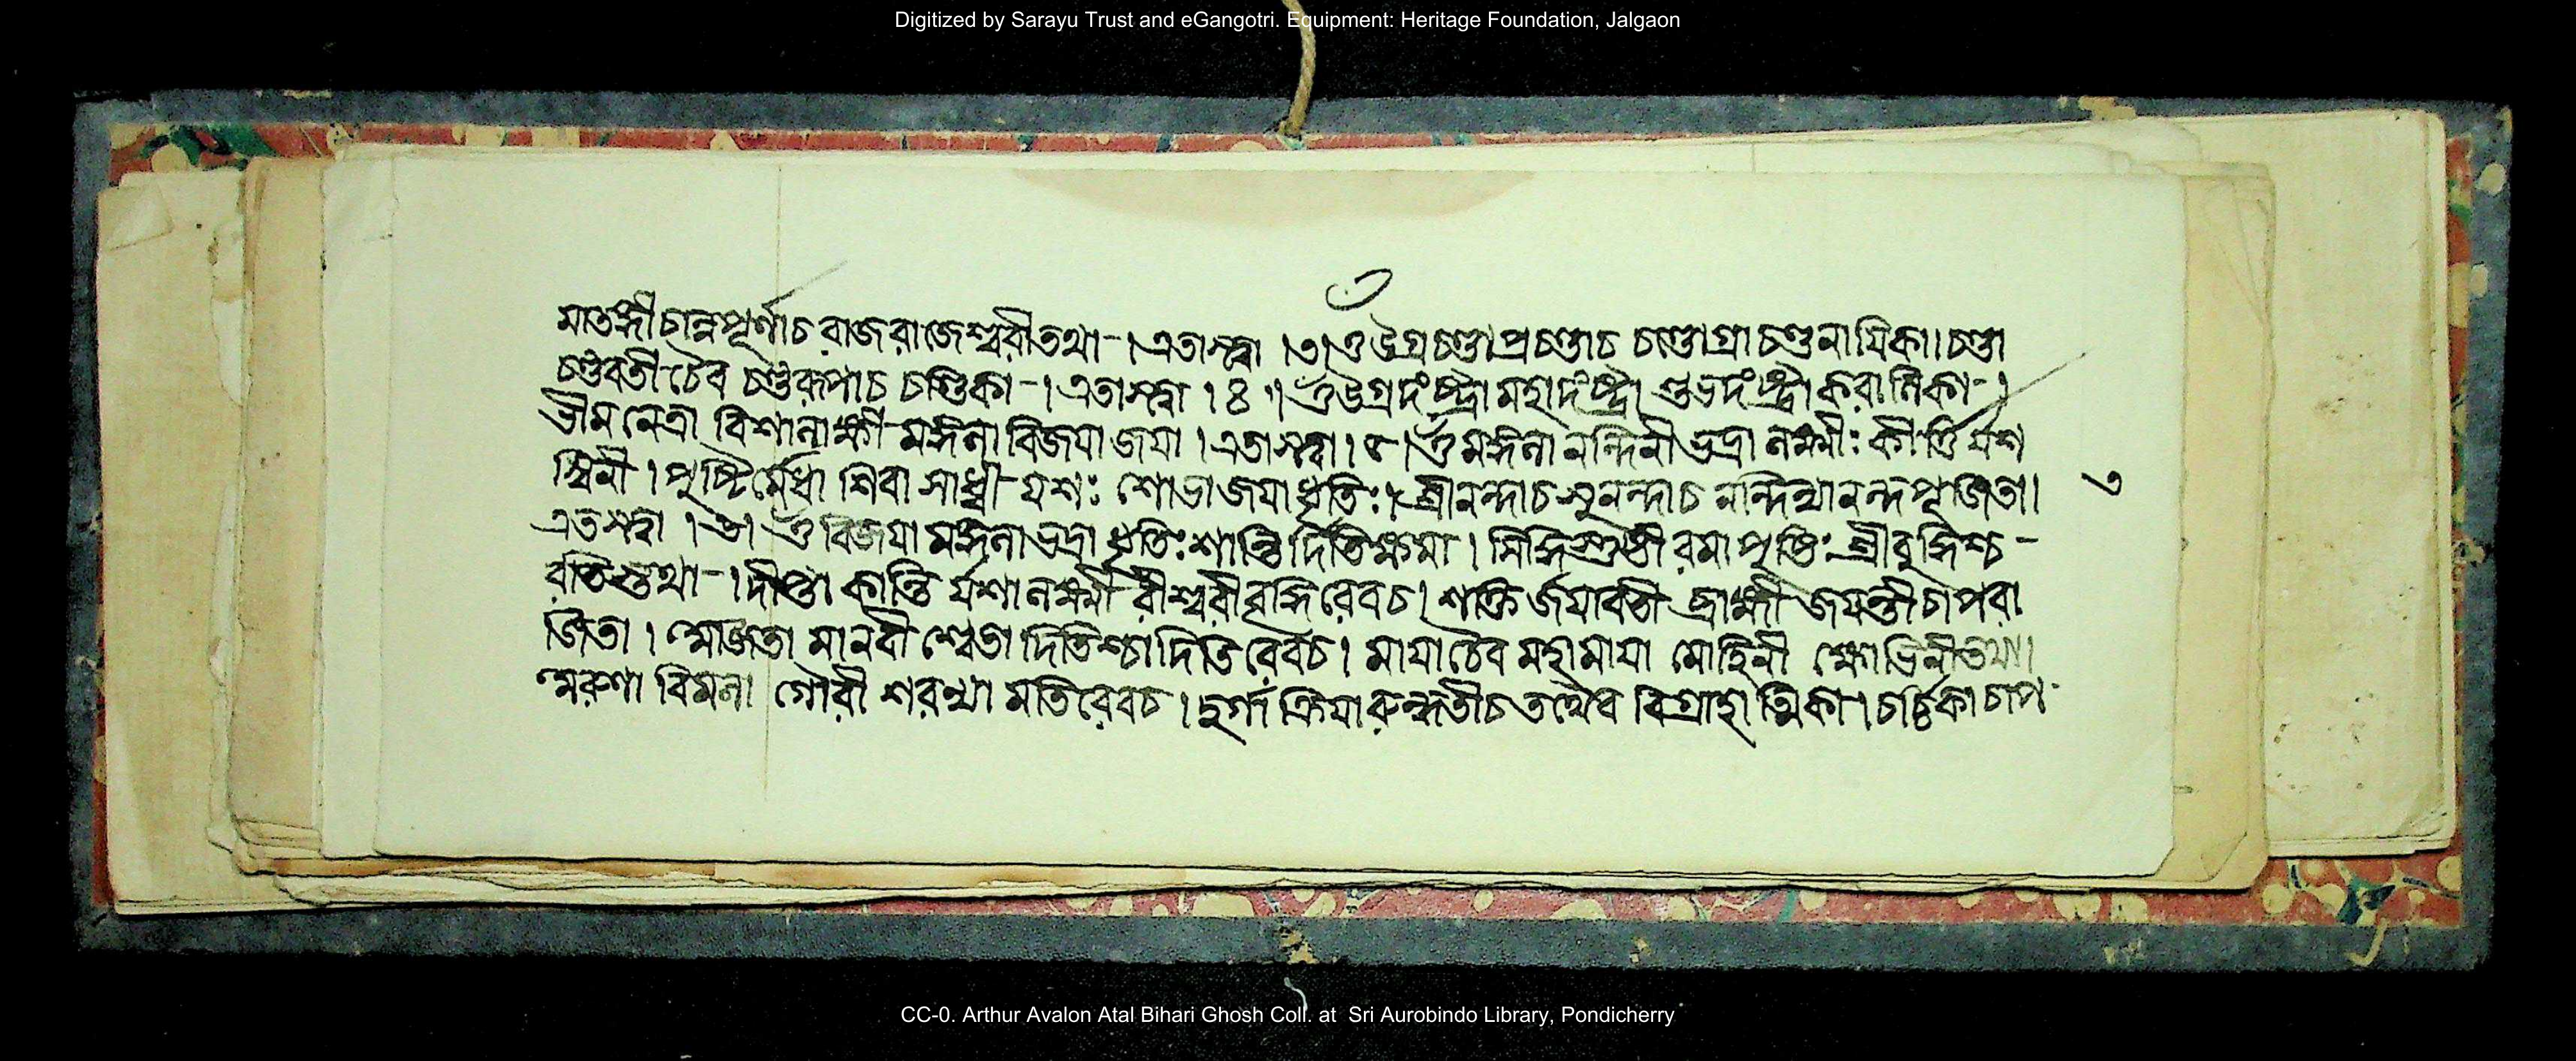 Digitized by Sarayu Trust and eGangotri. Equipment: Heritage Foundation, Jalgaon
মাতঙ্গী চান্নপূর্ণাচ রাজরাজেশ্বরীতথা-। এতাস্ত্বা ।৩। ওঁ উগ্রচণ্ডা প্রচণ্ডাচ চণ্ডোগ্রা চণ্ডনায়িকা। চণ্ডা
চণ্ডবতী চৈব চণ্ডরূপাচ চণ্ডিকা-। এতাস্ত্বা ।৪॥ ওঁ উগ্রদংষ্ট্রা মহাদংষ্ট্রা শুভদংষ্ট্রা করালিকা-।
ভীমনেত্রা বিশালাক্ষী মঙ্গলা বিজয়া জয়া । এতাস্ত্বা । ৫ । ওঁ মঙ্গলা নন্দিনী ভদ্রা লক্ষ্মীঃ কীর্ত্তির্যশ
স্বিনী । পুষ্টির্মেধা শিবা সাধ্বী যশঃ শোভা জয়া ধৃতিঃ। শ্রীনন্দাচ সুনন্দাচ নন্দিন্যানন্দপূজিতা।
৩
এতাস্ত্বা ।৬। ওঁ বিজয়া মঙ্গলা ভদ্রা ধৃতিঃ শান্তি র্দিতি ক্ষমা । সিদ্ধিস্তুষ্টী রমা পুষ্টিঃ শ্রীবুদ্ধিশ্চ-
রতিস্তথা-। দীপ্তা কান্তি র্যশা লক্ষ্মী রীশ্বরী বৃদ্ধিরেবচ। শক্তি র্জয়াবতী ব্রাহ্মী জয়ন্তী চাপরা
জিতা । মানবী শ্বেতা দিতিশ্চা দিতি রেবচ। মায়াচৈব মহামায়া মোহিনী ক্ষোভিনীতথা।
বিমলা গৌরী শরণ্যা মতিরেবচ । দুর্গা ক্রিয়া রুন্ধতীচ তথৈব বিগ্রহাত্মিকা। চর্চ্চিকা চাপ
CC-0. Arthur Avalon Atal Bihari Ghosh Coll. at Sri Aurobindo Library, Pondicherry